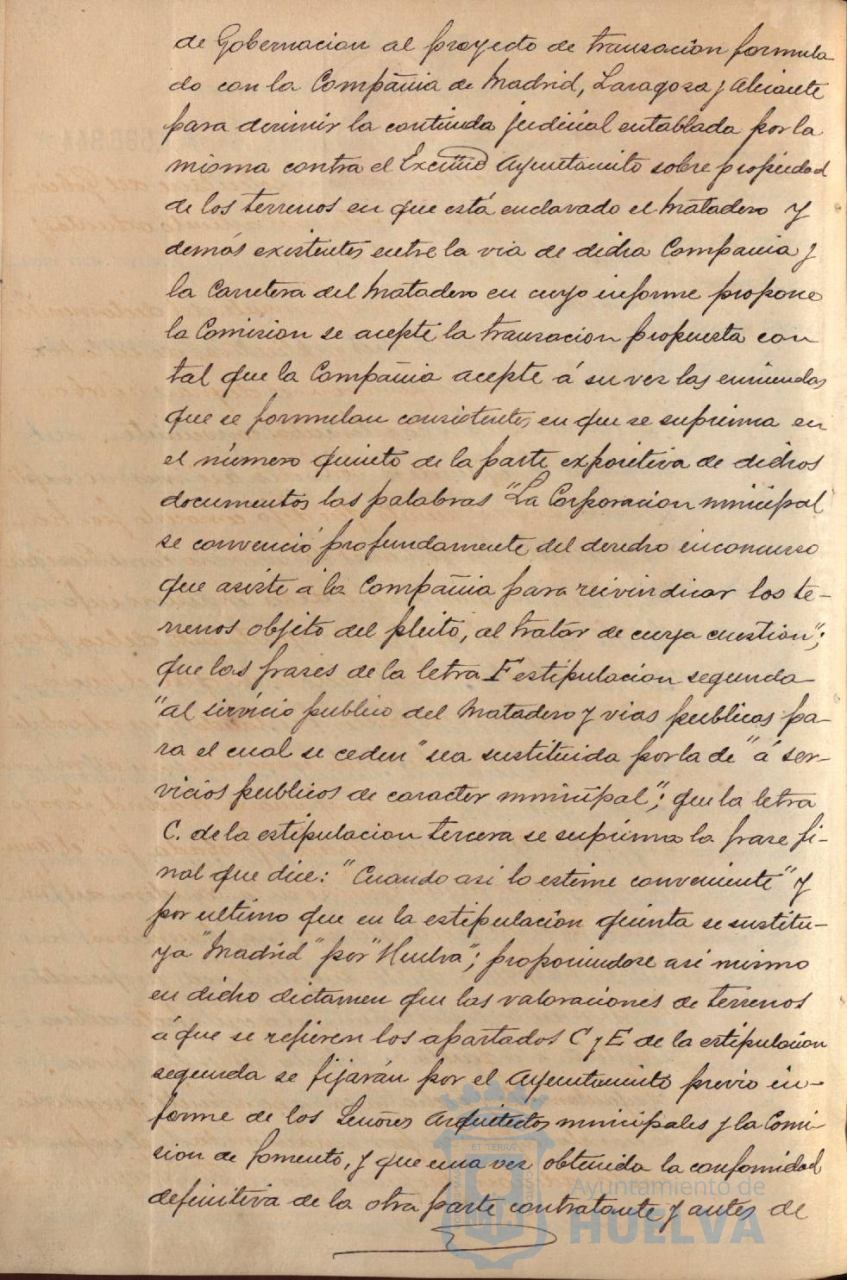 de Gobernacion al proyecto de transacion formula
do con la Compañia de Madrid, Zaragoza y Alicante
para dirimir la contienda judicial entablada por la
misma contra el Excmo Ayuntamiento sobre propiedad
de los terrenos en que está enclavado el Matadero y
demás existentes entre la via de dicha Compania y
la Carretera del Matadero en cuyo informe propone
la Comision se acepte la transacion propuesta con
tal que la Compañia acepte á su vez las enmiendas
que se formulan consistentes en que se suprima en
el número quinto de la parte expositiva de dichos
documentos las palabras "La Corporacion municipal
se convenció profundamente del derecho inconcuso
que asiste á la Compañia para reivindicar los te-
rrenos objeto del pleito, al tratar de cuya cuestion";
que las frases de la letra F estipulacion segunda
"al servicio publico del Matadero y vias publicas pa-
ra el cual se ceden" sea sustituida por la de "á ser-
vicios publicos de caracter municipal"; que la letra
C. de la estipulacion tercera se suprima la frase fi-
nal que dice: "Cuando asi lo estime conveniente" y
por ultimo que en la estipulacion quinta se sustitu-
ya "Madrid" por "Huelva"; proponiendose asi mismo
en dicho dictamen que las valoraciones de terrenos
á que se refieren los apartados C y E de la estipulacion
segunda se fijarán por el Ayuntamiento previo in-
forme de los Señores Arquitectos municipales y la Comi-
sion de fomento, y que una vez obtenida la conformidad
definitiva de la otra parte contratante y antes de
Ayuntamiento de
HUELVA